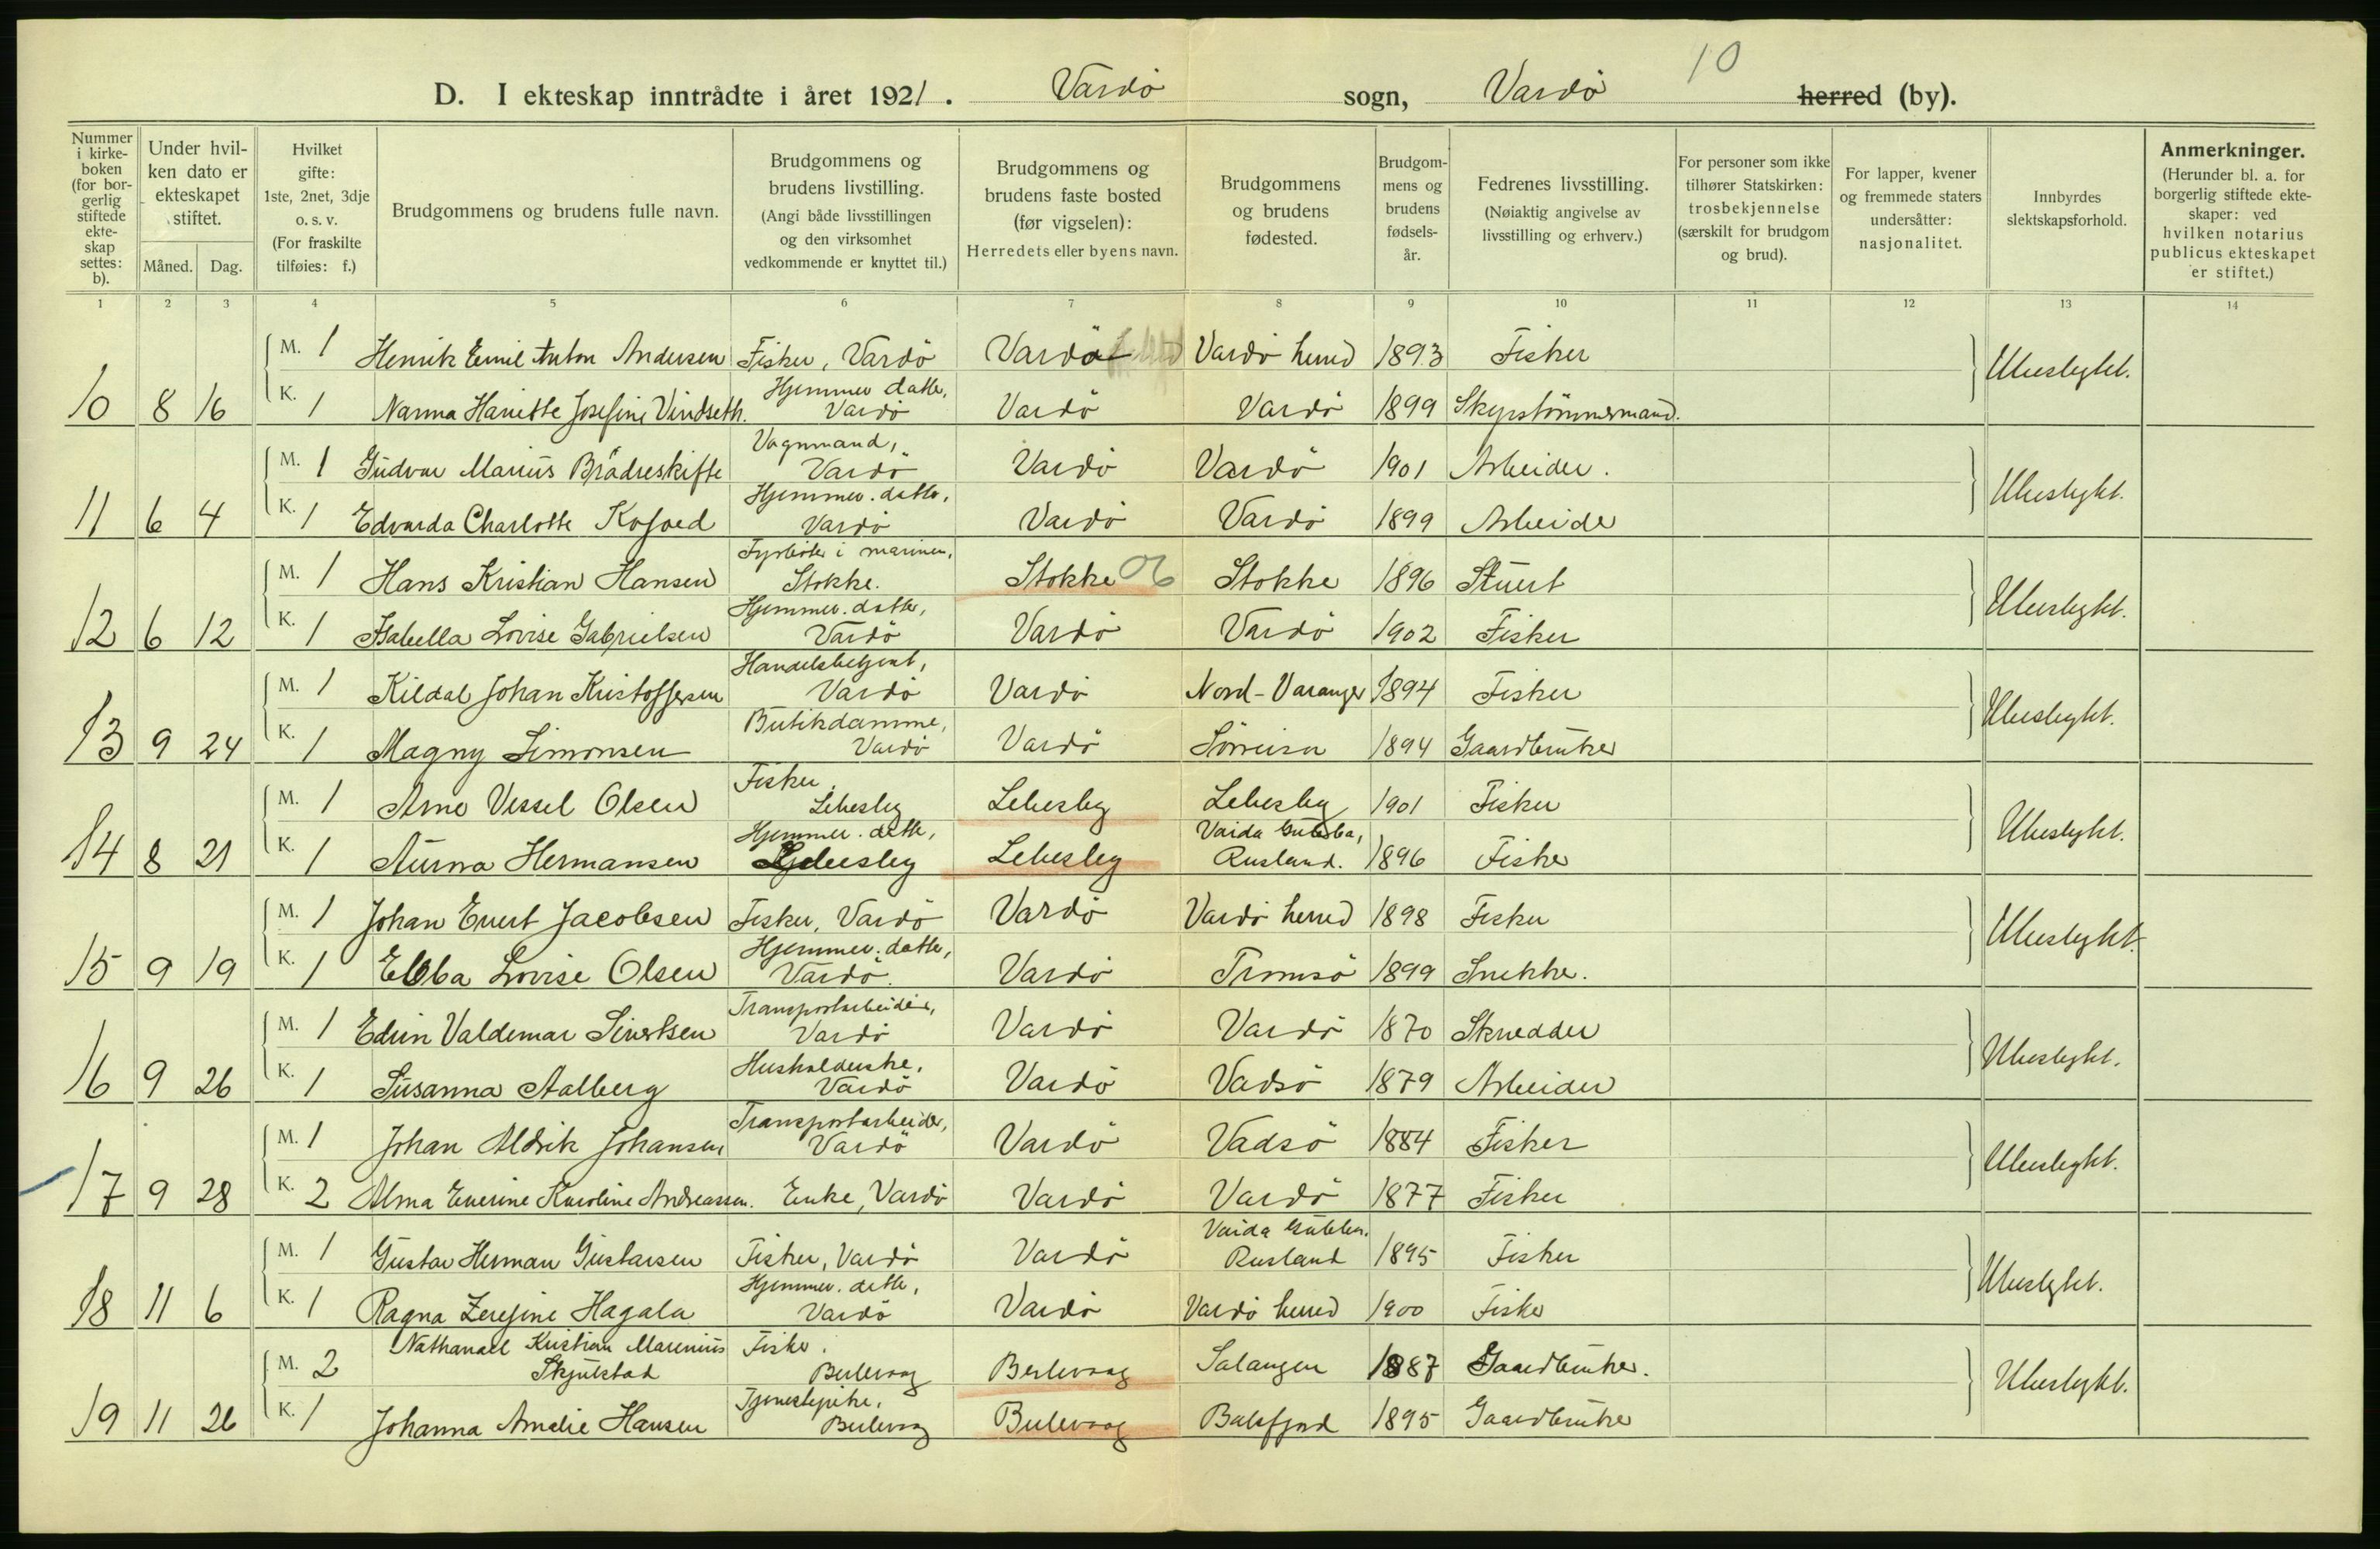 10
D. I ekteskap inntrådte i året 1921. Vardö sogn, Vardö herred (by).
Nummer i kirke-boken (for bor-gerlig stiftede ekte-skap settes: b).
Under hvil-ken dato er ekteskapet stiftet.
Måned. Dag.
Hvilket gifte: 1ste, 2net, 3dje o. s. v. (For fraskilte tilføies: f.)
Brudgommens og brudens fulle navn.
Brudgommens og brudens livstilling. (Angi både livsstillingen og den virksomhet vedkommende er knyttet til.)
Brudgommens og brudens faste bosted (før vigselen): Herredets eller byens navn.
Brudgommens og brudens fødested.
Brudgom-mens og brudens fødsels-år.
Fedrenes livsstilling. (Nøiaktig angivelse av livsstilling og erhverv.)
For personer som ikke tilhører Statskirken: trosbekjennelse (særskilt for brudgom og brud).
For lapper, kvener og fremmede staters undersåtter: nasjonalitet.
Innbyrdes slektskapsforhold.
Anmerkninger. (Herunder bl. a. for borgerlig stiftede ekte-skaper: ved hvilken notarius publicus ekteskapet er stiftet.)
1 2 3 4 5 6 7 8 9 10 11 12 13 14
M. 1 Henrik Emil Anton Andersen Fisker, Vardö Vardö Vardö herred 1893 Fisker Ubeslegtet.
10 8 16 K. 1 Nanna Hariette Josefine Vindseth. Hjemmev. datter, Vardö Vardö Vardö 1899 Skypstömmermand.
M. 1 Gudvar Marius Brödreskifte Vognmand, Vardö Vardö Vardö 1901 Arbeider. Ubeslegtet.
11 6 4 K. 1 Edvarda Charlotte Kofoed Hjemmev. datter, Vardö Vardö Vardö 1899 Arbeider
M. 1 Hans Kristian Hansen Fyrböter i marinen, Stokke. Stokke 06 Stokke 1896 Stuert Ubeslegtet.
12 6 12 K. 1 Isabella Lovise Gabrielsen Hjemmev. datter, Vardö Vardö Vardö 1902 Fisker
M. 1 Kildal Johan Kristoffersen Handelsbetjent, Vardö Vardö Nord-Varanger 1894 Fisker Ubeslegtet.
13 9 24 K. 1 Magny Simonsen Butikdamme, Vardö Vardö Sörreisa 1894 Gaardbruker
M. 1 Arne Vessel Olsen Fisker, Lebesby Lebesby Lebesby 1901 Fisker Ubeslegtet.
14 8 21 K. 1 Aurora Hermansen Hjemmev. datter, Lebesby Lebesby Vaida Guba, Rusland. 1896 Fisker
M. 1 Johan Evert Jacobsen Fisker, Vardö Vardö Vardö herred 1898 Fisker Ubeslegtet.
15 9 19 K. 1 Ebba Lovise Olsen Hjemmev. datter, Vardö. Vardö Tromsö 1899 Snekker.
M. 1 Edvin Valdemar Sivertsen Transportarbeider, Vardö Vardö Vardö 1870 Skredder Ubeslegtet.
16 9 26 K. 1 Susanna Aalberg Husholderske, Vardö Vardö Vadsö 1879 Arbeider
M. 1 Johan Aldrik Johansen Transportarbeider, Vardö Vardö Vadsö 1884 Fisker Ubeslegtet.
17 9 28 K. 2 Alma Everine Karoline Andreassen. Enke, Vardö Vardö Vardö 1877 Fisker
M. 1 Gustav Herman Gustavsen Fisker, Vardö Vardö Vaida Rusland 1895 Fisker Ubeslegtet.
18 11 6 K. 1 Ragna Zerefine Hagala Hjemmev. datter, Vardö Vardö Vardö herred 1900 Fisker
M. 2 Nathanael Kristian Marenius Skjulstad Fisker. Berlevaag Berlevaag Salangen 1887 Gaardbruker. Ubeslegtet.
19 11 26 K. 1 Johanna Amalie Hansen Tjenestepike, Berlevaag Berlevaag Balsfjord 1895 Gaardbruker